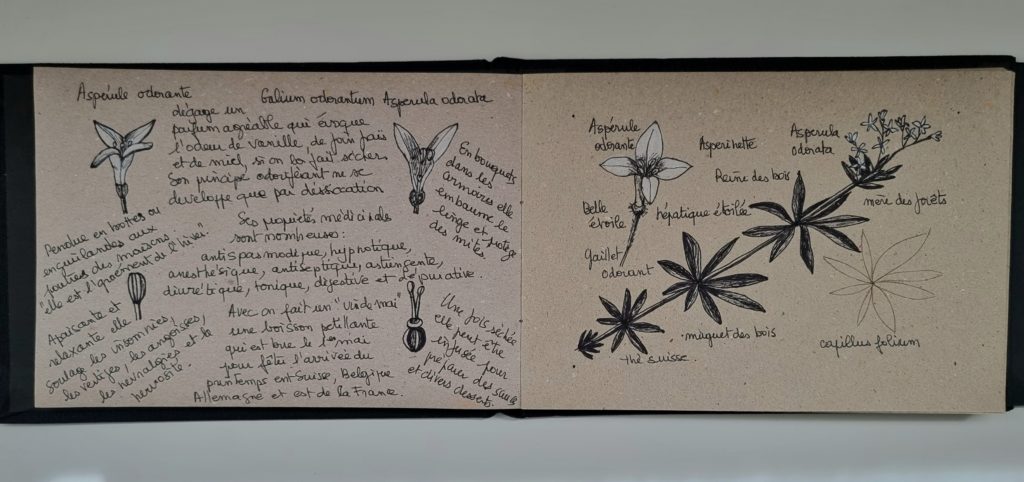 Aspérule odorante
Galium odorantum Asperula odorata
dégage un
parfum agréable qui évoque
l'odeur de vanille, de foin
et de miel, si on la fait sécher
Son principe odoriférant ne se
développe que par dessiccation
En bouquets
dans les
armoires elle
embaume le
linge et
des mites
Pendue en bottes ou
enguirlandes aux
poutres des maisons
"elle est l'agrément de l'hiver"
Ses propiétés médicinale
sont nombreuses:
antispasmodique, hypnotique,
anesthésique, antiseptique, astringente,
diurétique, tonique, digestive et dépurative.
Apaisante et
relaxante elle
soulage les insomnies,
les vertiges, les angoisses,
les névralgies et la
nervosité.
Avec on fait un "vin de mai"
une boisson petillante
qui est bue le 1er mai
pour fêter l'arrivée du
printemps en Suisse, Belgique
Allemagne et est de la France.
Une fois séchée
elle peut être
infusée pour
préparer des
et divers desserts.
Aspérule
odorante
Asperinette
Asperula
odorata
Reine des bois
mère des forêts
Belle
étoile
hépatique étoilée
Gaillet
odorant
muguet des bois
thé suisse
capillus folium